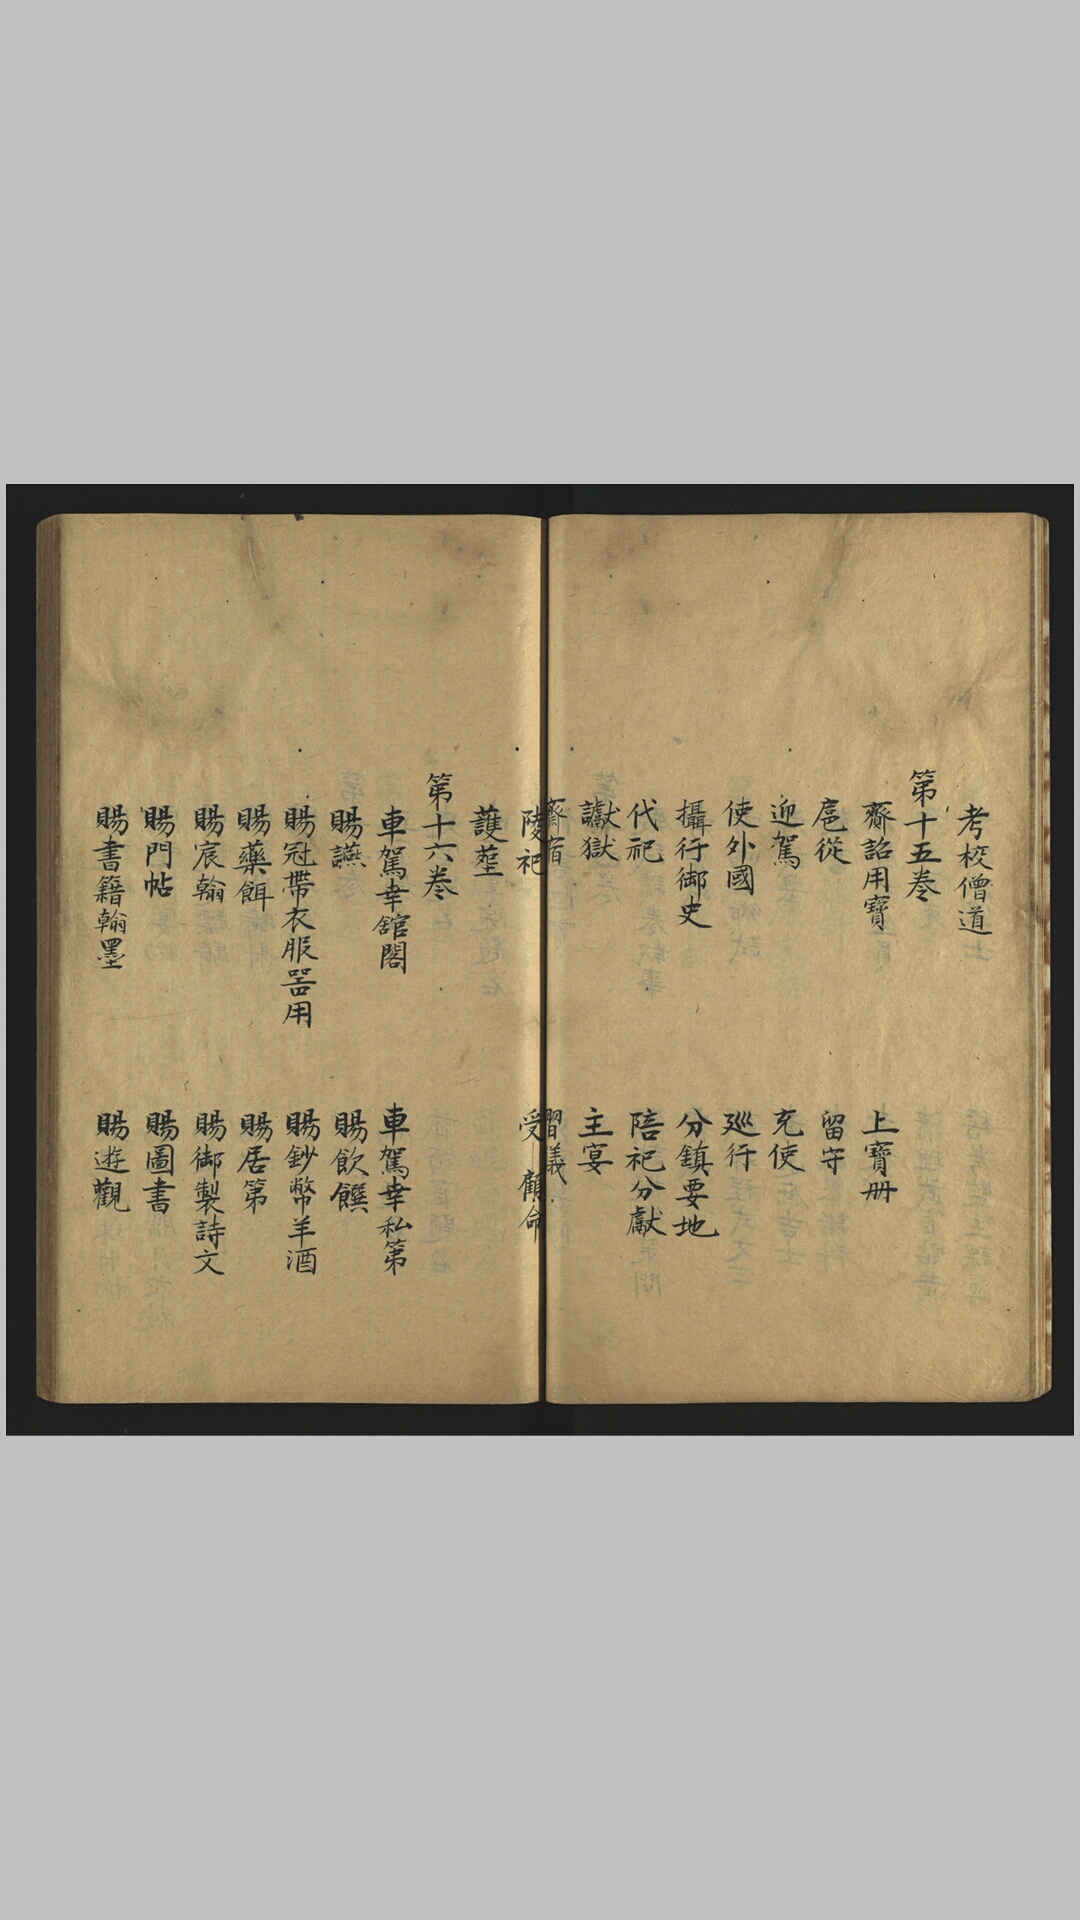 考校僧道
第十五卷
齎詔用寶　上寶册
扈從　留守
迎駕　充使
使外國　巡行
攝行御史　分鎮要地
代祀　陪祀分獻
讞獄　主宴
齋宿　習儀
陵祀　受　顧命
護塟
第十六卷
車駕幸舘閣　車駕幸私第
賜讌　賜飲饌
賜冠帶衣服器用　賜鈔幣羊酒
賜藥餌　賜居第
賜宸翰　賜御製詩文
賜門帖　賜圖書
賜書籍翰墨　賜遊觀